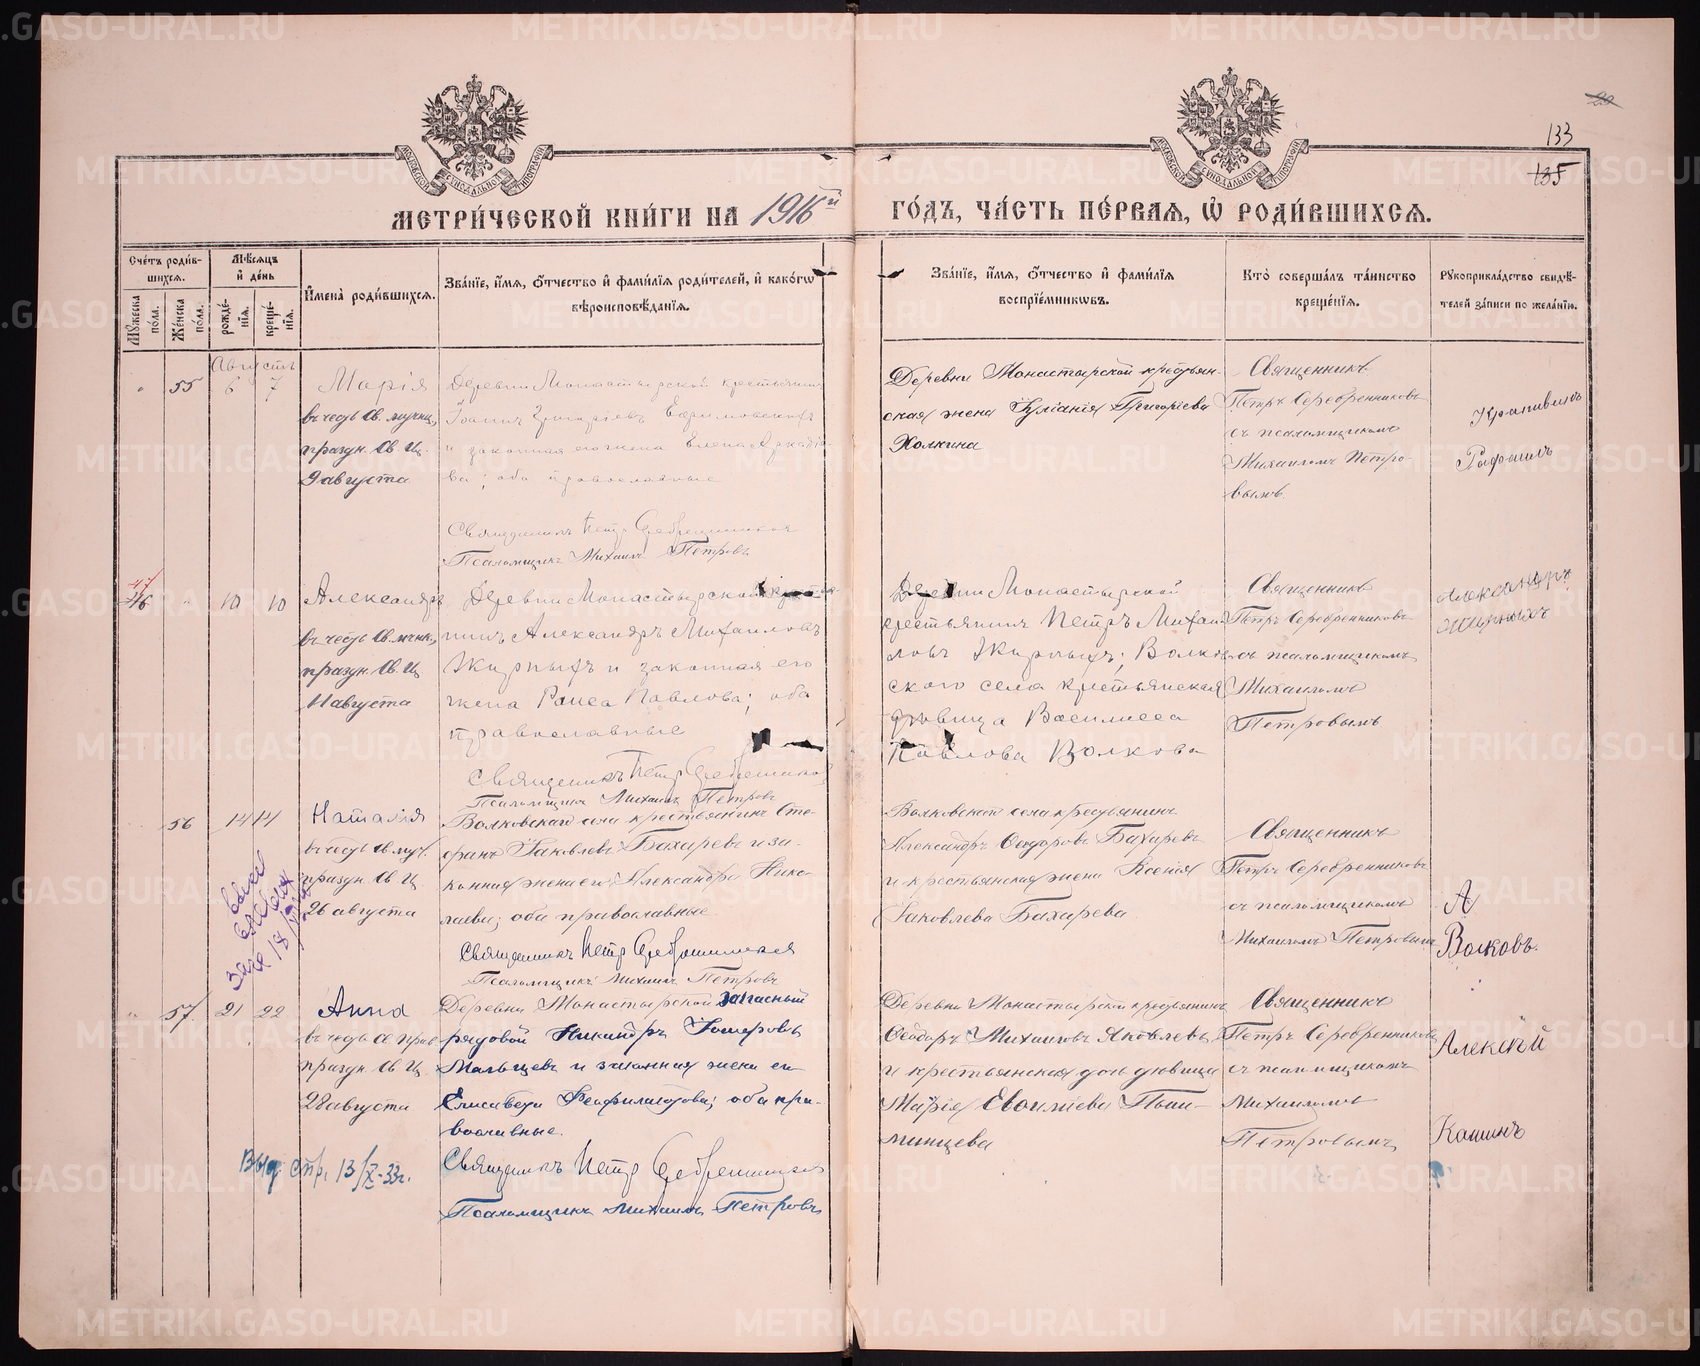 133
135
МЕТРИ́ЧЕСКОЙ КНИ́ГИ НА 1916й ГО́ДЪ, ЧА́СТЬ ПЕ́РВАЯ, Ѡ РОДИ́ВШИХСЯ.
Сче́тъ роди́в-
шихся.
Му́жеска по́ла.
Же́нска по́ла.
Мѣ́сяцъ
и де́нь
рожде́-
нїя.
креще́-
нїя.
И҆мена̀ роди́вшихся.
Зва́нїе, и҆́мя, ѻ҆́тчество и҆ фами́лїя роди́телей, и҆ како́гѡ
вѣроисповѣ́данїя.
Зва́нїе, и҆́мя, ѻ҆́тчество и҆ фами́лїя
воспрїе́мникѡвъ.
Кто̀ соверша́лъ та́инство
креще́нїя.
Рꙋкоприкла́дство свидѣ́-
телей за́писи по жела́нїю.
Августъ
55
6
7
Марія
въ честь св. мучен.,
праздн. Св. Ц.
9 августа
Деревни Монастырской крестьянинъ
Іоаннъ Григоріевъ
и законная его жена Елена Аркадіе-
ва; оба православные
Священникъ Петръ Серебренниковъ
Псаломщикъ Михаилъ Петровъ
Деревни Монастырской крестьян-
ская жена Іуліанія Григоріева
Холкина
Священникъ
Петръ Серебренниковъ
съ псаломщикомъ
Михаиломъ Петро-
вымъ.
Крапивинъ
Рафаилъ
47
46
10
10
Александръ
въ честь св. мчник.,
праздн. Св. Ц.
11 августа
Деревни Монастырской
Александръ Михаиловъ
Жирныхъ и законная его
жена Раиса Павлова; оба
православные
Священникъ Петръ Серебренниковъ
Псаломщикъ Михаилъ Петровъ
Деревни Монастырской
крестьянинъ Петръ Михаи-
ловъ Жирныхъ; Волков-
скаго села крестьянская
дѣвица Василисса
Павлова Волкова
Священникъ
Петръ Серебренниковъ
съ псаломщикомъ
Михаиломъ
Петровымъ
Александръ
Жирныхъ
56
14
14
Наталія
въ честь св. муч.
праздн. Св. Ц.
26 августа
Волковскаго села крестьянинъ Сте-
фанъ Іаковлевъ Бахаревъ и за-
конная жена его Александра Нико-
лаева; оба православные
Священникъ Петръ Серебренниковъ
Псаломщикъ Михаилъ Петровъ
Волковскаго села крестьянинъ
Александръ Ѳеодоровъ Бахаревъ
и крестьянская жена Ксенія
Іаковлева Бахарева
Священникъ
Петръ Серебренниковъ
съ псаломщикомъ
Михаиломъ Петровымъ
А
Волковъ.
57
21
22
Анна
въ честь св. прав.
праздн. Св. Ц.
28 августа
Деревни Монастырской запасный
рядовой Никандръ
Мальцевъ и законная жена его
Елисавета Феофилактова; оба пра-
вославные.
Священникъ Петръ Серебренниковъ
Псаломщикъ Михаилъ Петровъ
Деревни Монастырской крестьянинъ
Ѳеодоръ Михаиловъ Яковлевъ
и крестьянская дочь дѣвица
Марія
Священникъ
Петръ Серебренниковъ
съ псаломщикомъ
Михаиломъ
Петровымъ
Алексѣй
Кашинъ
Выд. стр. 13/X-33г.